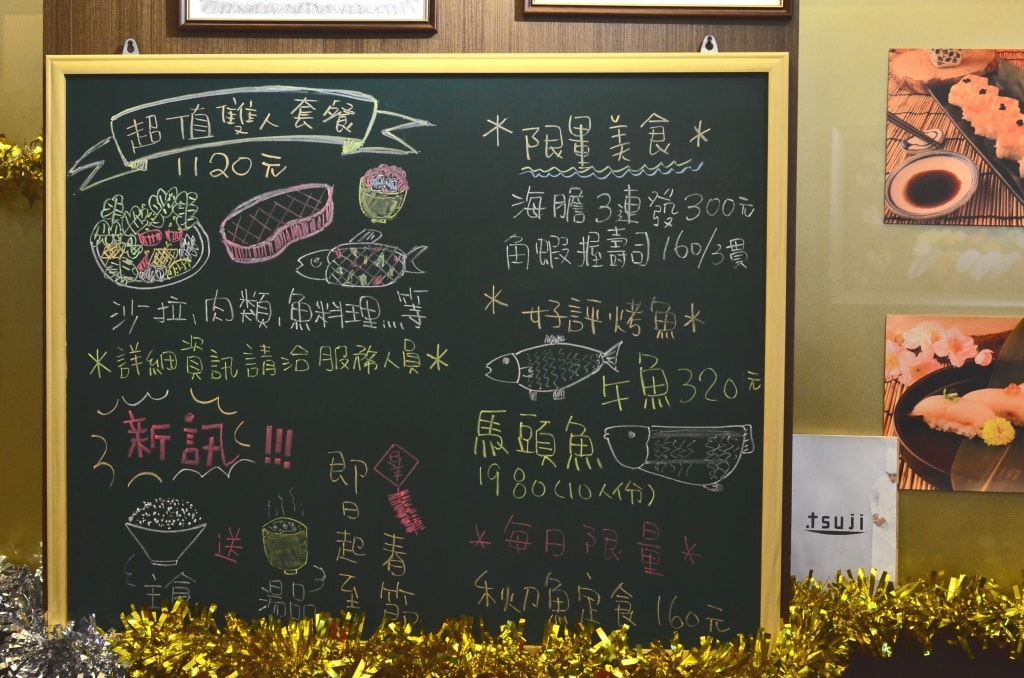 超值雙人套餐
1120元
沙拉、肉類、魚料理...等
*詳細資訊請洽服務人員*
新訊!!!
主食
送
湯品
即日起至
春節
*限量美食*
海膽3連發300元
角蝦握壽司160/3貫
*好評烤魚*
午魚320元
馬頭魚
1980(10人份)
*每日限量*
秋刀魚定食160元
tsuji